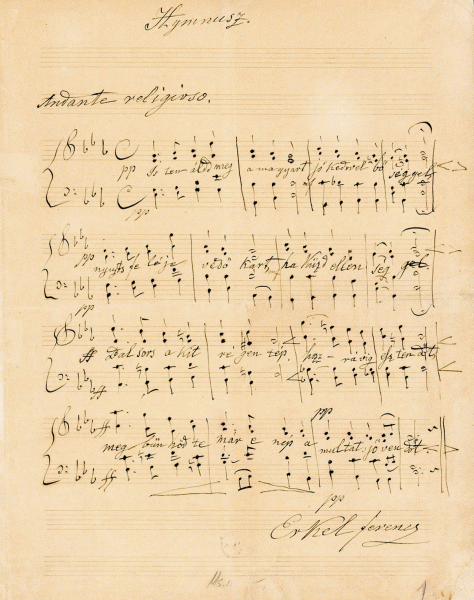 Hymnusz.
Andante religioso.
pp Isten áldd meg a magyart jó kedvvel bő séggel
pp
nyujts fe léje védő kart, ha küzd ellen ség gel
pp
ff Bal sors a kit régen tép, hoz - rá víg esz ten dőt,
ff
pp
ff meg bűn hőd te már e nép a multat jöven dőt.
ff
pp
Erkel Ferencz